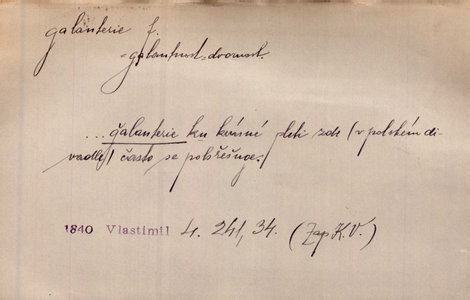 galanterie f.
= galantnost, dvornost.
... galanterie ku krásné pleti zde (v polském di-
vadle) často se
1840 Vlastimil 4. 241, 34. (Zap K. V.)